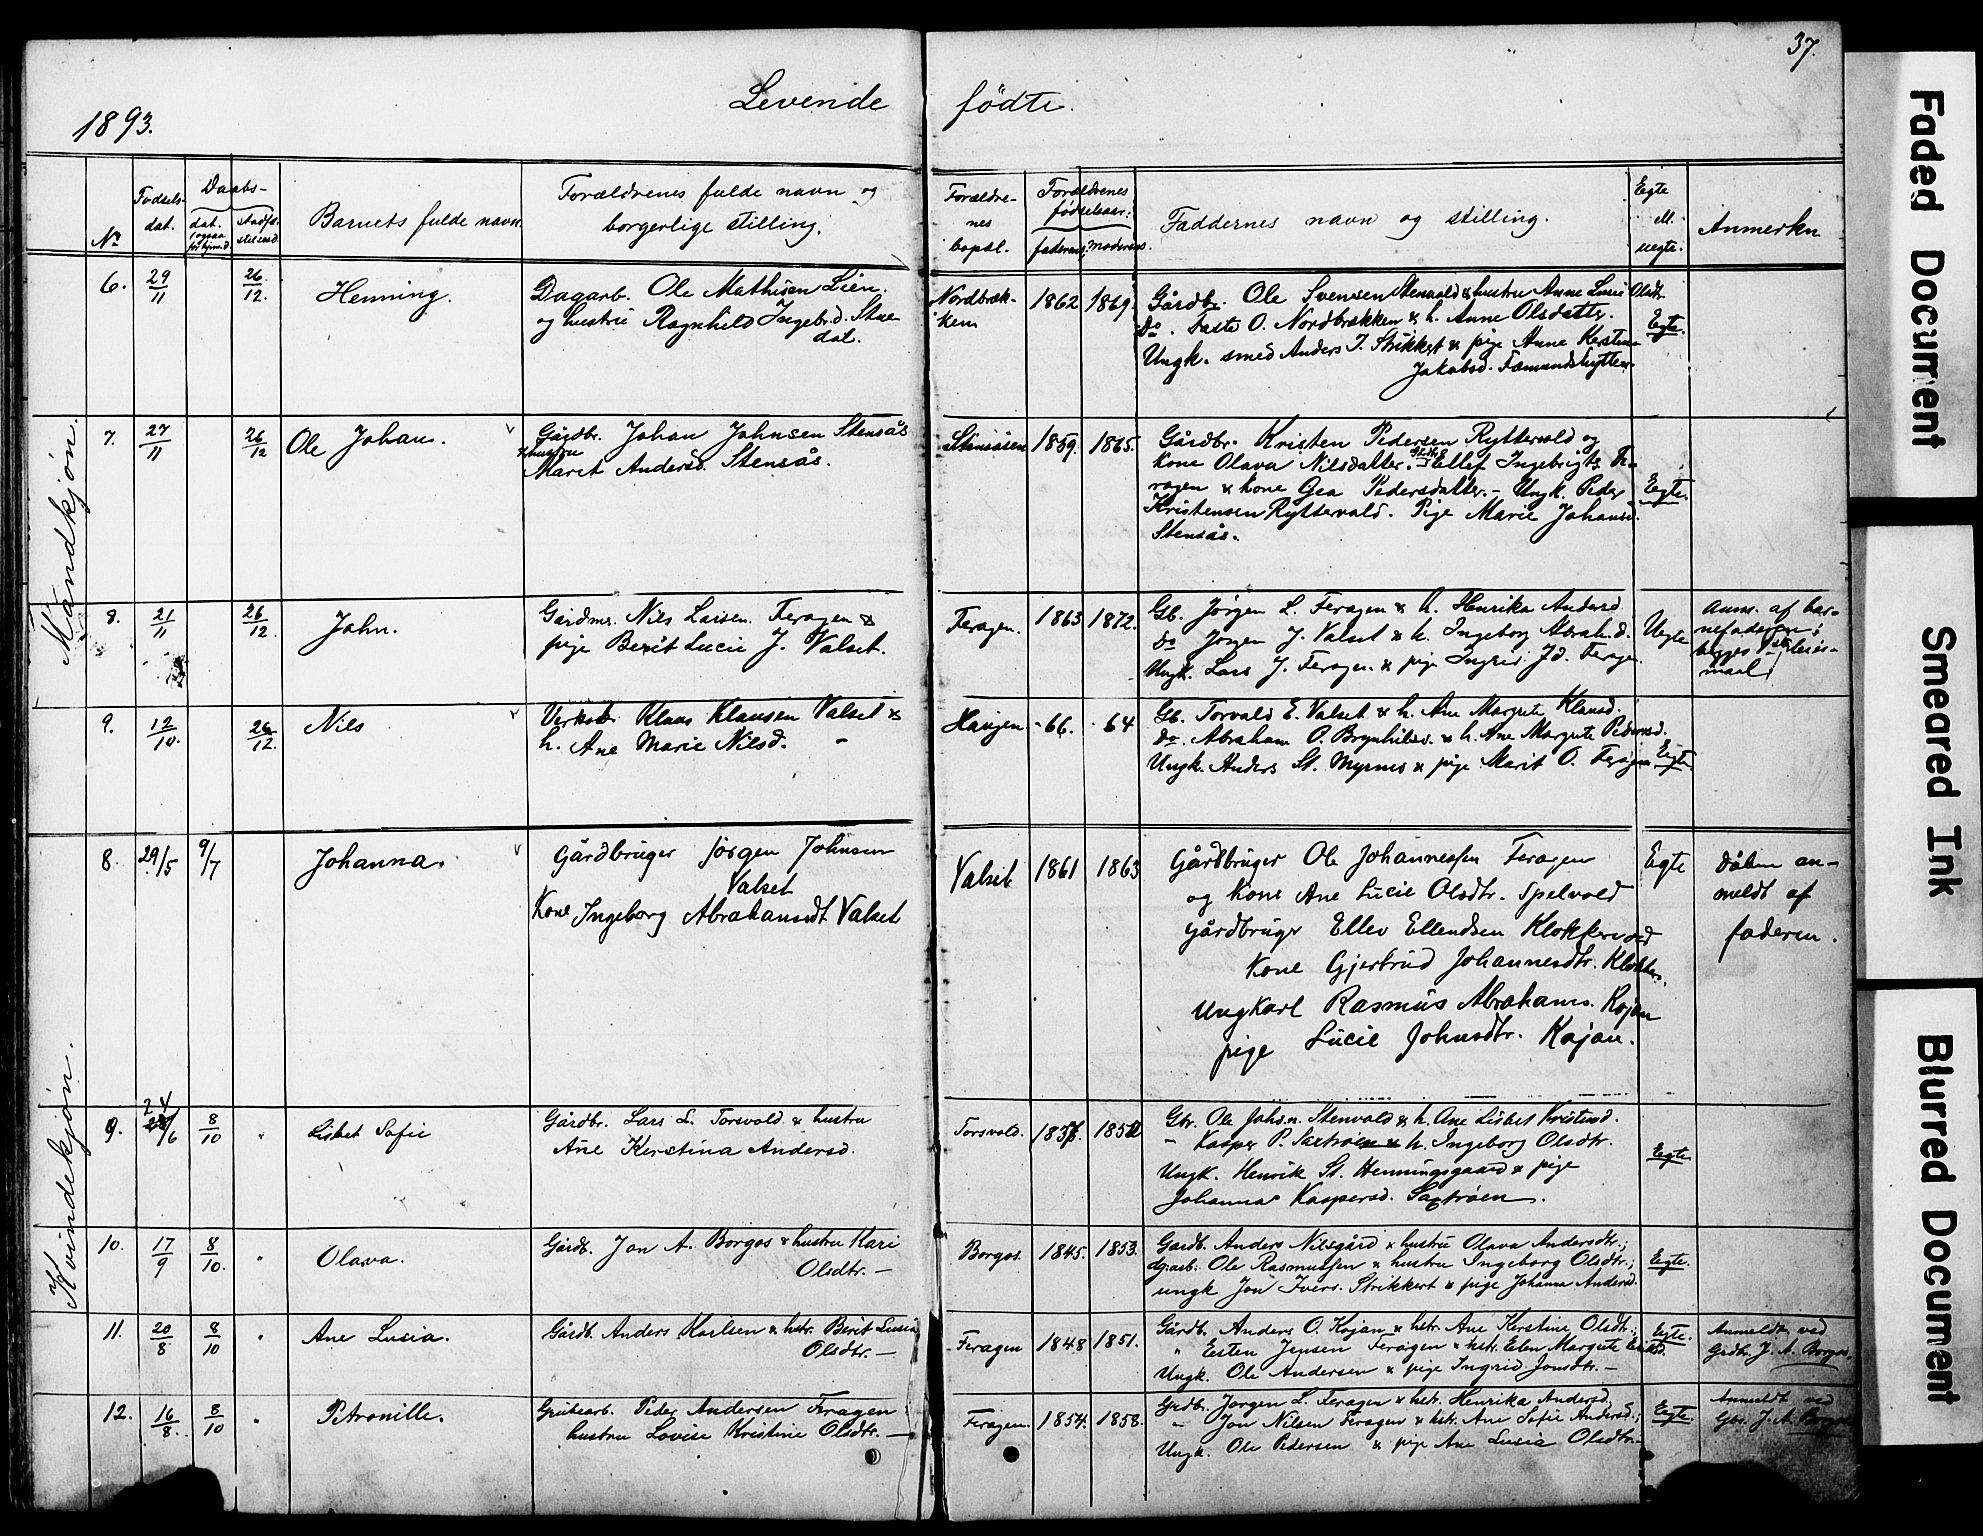 37.
Levende fødte.
1893.
Nr. Fødsels-dat. Daabs- dat. (ogsaa for hjemd. stadfæ-stelsesd. Barnets fulde navn. Forældrenes fulde navn og borgerlige stilling. Forældre-nes bopæl. Forældrenes fødselsaar: faderens, moderens. Faddernes navn og stilling. Egte ell. uegte. Anmerkn.
Mandkjøn.
6. 29/11 26/12. Henning. Dagarb. Ole Mathisen Lien.
og hustru Ragnhild Ingebr.d. Stue
dal.
Nordbræk-
ken 1862 1869.
Gårdbr. Ole Svensen Stenvold & hustru Anne Lusie Olsdtr.
Do. Faste O. Nordbrækken & h. Anne Olsdatter.
Ungk. smed Anders J. Strikkert & pige Anne Kerstine
Jakobsd. Fæmundshytten.
Egte.
7. 27/11 26/12 Ole Johan. Gårdbr. Johan Johnsen Stensås
& hustru
Marit Andersd. Stensås.
Stensåsen 1859. 1865.
Gårdbr. Kristen Pedersen Ryttervold og
kone Olava Nilsdatter. Ellef Ingebrigts Fe-
ragen & kone Gea Pedersdatter. – Ungk. Peder
Kristensen Ryttervold. Pige Marie Johansd.
Stensås.
Egte.
8. 21/11 26/12. John. Gårdmr. Nils Larsen Feragen &
pige Berit Lucie J. Valset.
Feragen. 1863 1872.
Gb. Jörgen L. Feragen & h. Henrika Andersd.
do Jörgen J. Valset & h. Ingeborg Abrah.d.
Ungk. Lars J. Feragen & pige Ingrid Jd. Feragen
Uegte
Anm. af bar-
nefaderen;
begges 1ste leiers-
maal.
9. 12/10. 26/12. Nils Verksb. Klaus Klausen Valset &
h. Ane Marie Nilsd. –
Haugen - 66. - 64
Gb. Torvald E. Valset & h. Ane Margrete Klausd.
do. Abraham O. Brynhilsv. & h. Ane Margrete Pedersd.
Ungk. Anders St. Myrmo & pige Marit O. Feragen
Egte.
Kvindekjøn.
8. 29/5 9/7 Johanna. Gårdbruger Jörgen Johnsen
Valset
Kone Ingeborg Abrahamsdt Valset
Valset 1861 1863
Gårdbruger Ole Johannessen Feragen
og kone Ane Lucie Olsdtr. Spelvold
Gårdbruger Ellev Ellendsen Klokkervold
Kone Gjertrud Johannesdtr. Klokkerv.
Ungkarl Rasmus Abrahams. Kojan
pige Lucie Johnsdtr. Kojan.
Egte
Dåben an-
meldt af
faderen.
9. 24/6 8/10 " Lisbet Sofie Gårdbr. Lars L. Torsvold & hustru
Ane Kerstina Andersd.
Torsvold. 1857. 1852
Gbr. Ole Johs.n. Stenvold & h. Ane Lisbet Kristend.
" Kasper P. Sætroen & h. Ingeborg Olsdtr.
Ungk. Henrik St. Henningsgaard & pige
Johanna Kaspersd. Sætröen.
Egte.
10. 17/9 8/10. " Olava. Gårdb. Jon A. Borgos & hustru Kari
Olsdtr. –
Borgos. 1845. 1853.
Gaardb. Anders Nilsgård & hustru Olava Andersdtr.;
dg:arb. Ole Rasmussen & hustru Ingeborg Olsdtr.;
ungk Jon Ivers. Strikkert & pige Johanna Andersd.
Egte.
11. 20/8 8/10 " Ane Lusia. Gårdb. Anders Karlsen & hstr. Berit Lusia
Olsdtr. –
Feragen 1848 1851.
Gårdb. Anders O. Kojan & hstr. Ane Kerstine Olsdtr.;
" Esten Jensen Feragen & hstr. Elen Margrete Eriksd.
Ungk. Ole Andersen & pige Ingrid Jonsdtr. –
Egte.
Anmeldt ved
Grdbr. J. A. Borgos.
12. 16/8. 8/10 " Petronille. Grubearb. Peder Andersen Feragen;
hustru Lovise Kristine Olsdtr. –
Feragen. 1854. 1858.
Grdb. Jørgen L. Feragen & hstr. Henrika Andersd.
" Jon Nilsen Feragen & hstr. Ane Sofie Andersd.;
Ungk. Ole Pedersen & pige Ane Lusia Olsdtr. –
Egte.
Anmeldt ved
Gbr. J. A. Borgos
Faded Document
Smeared Ink
Blurred Document